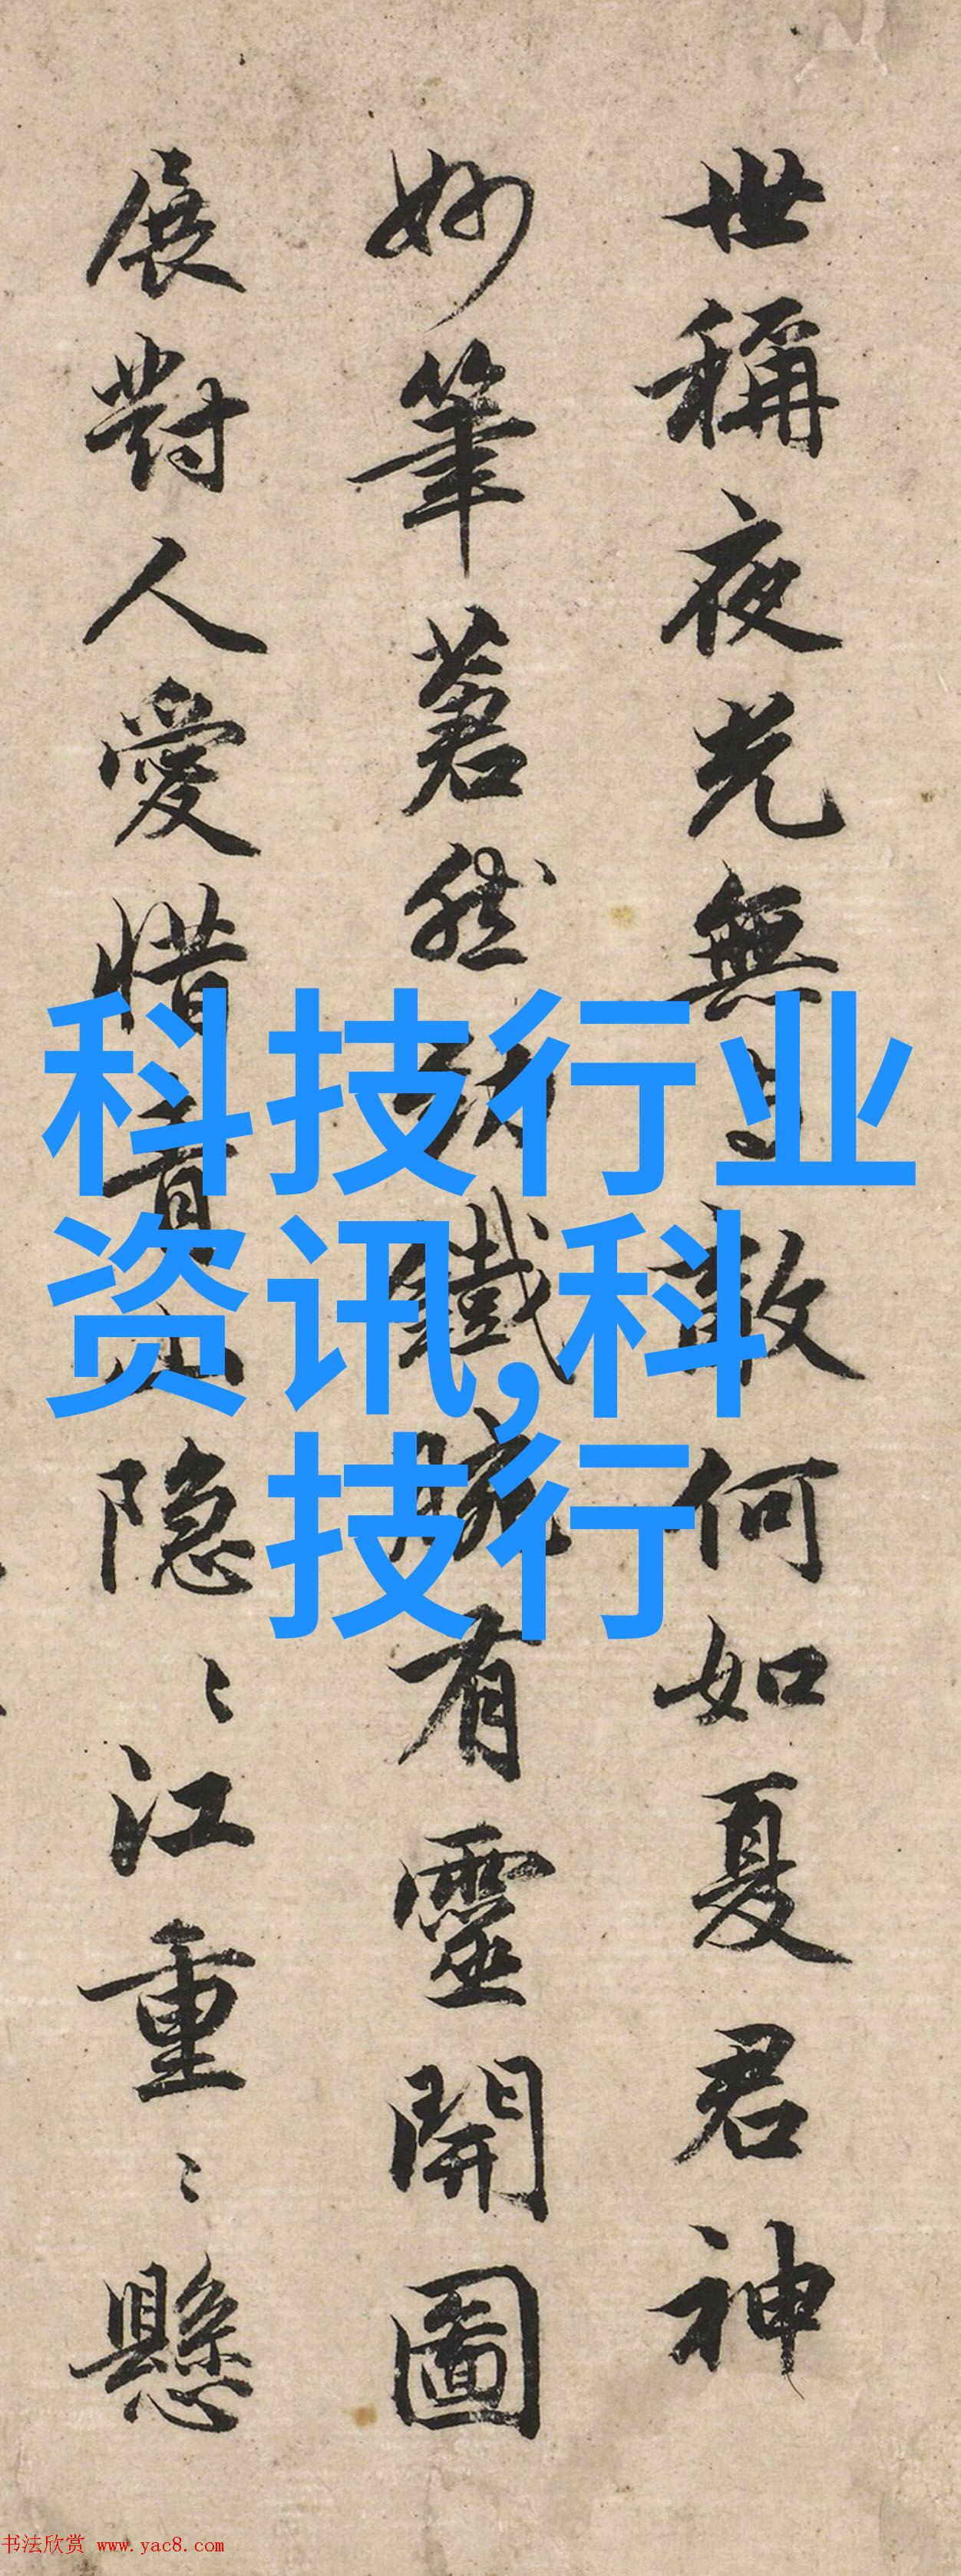 世稱夜光無敵何如夏君神
妙筆然鐵腕有靈開圖
展對人愛惜隐〻江重〻懸
科技行业
资讯,科
技行
书法欣赏 www.yac8.com